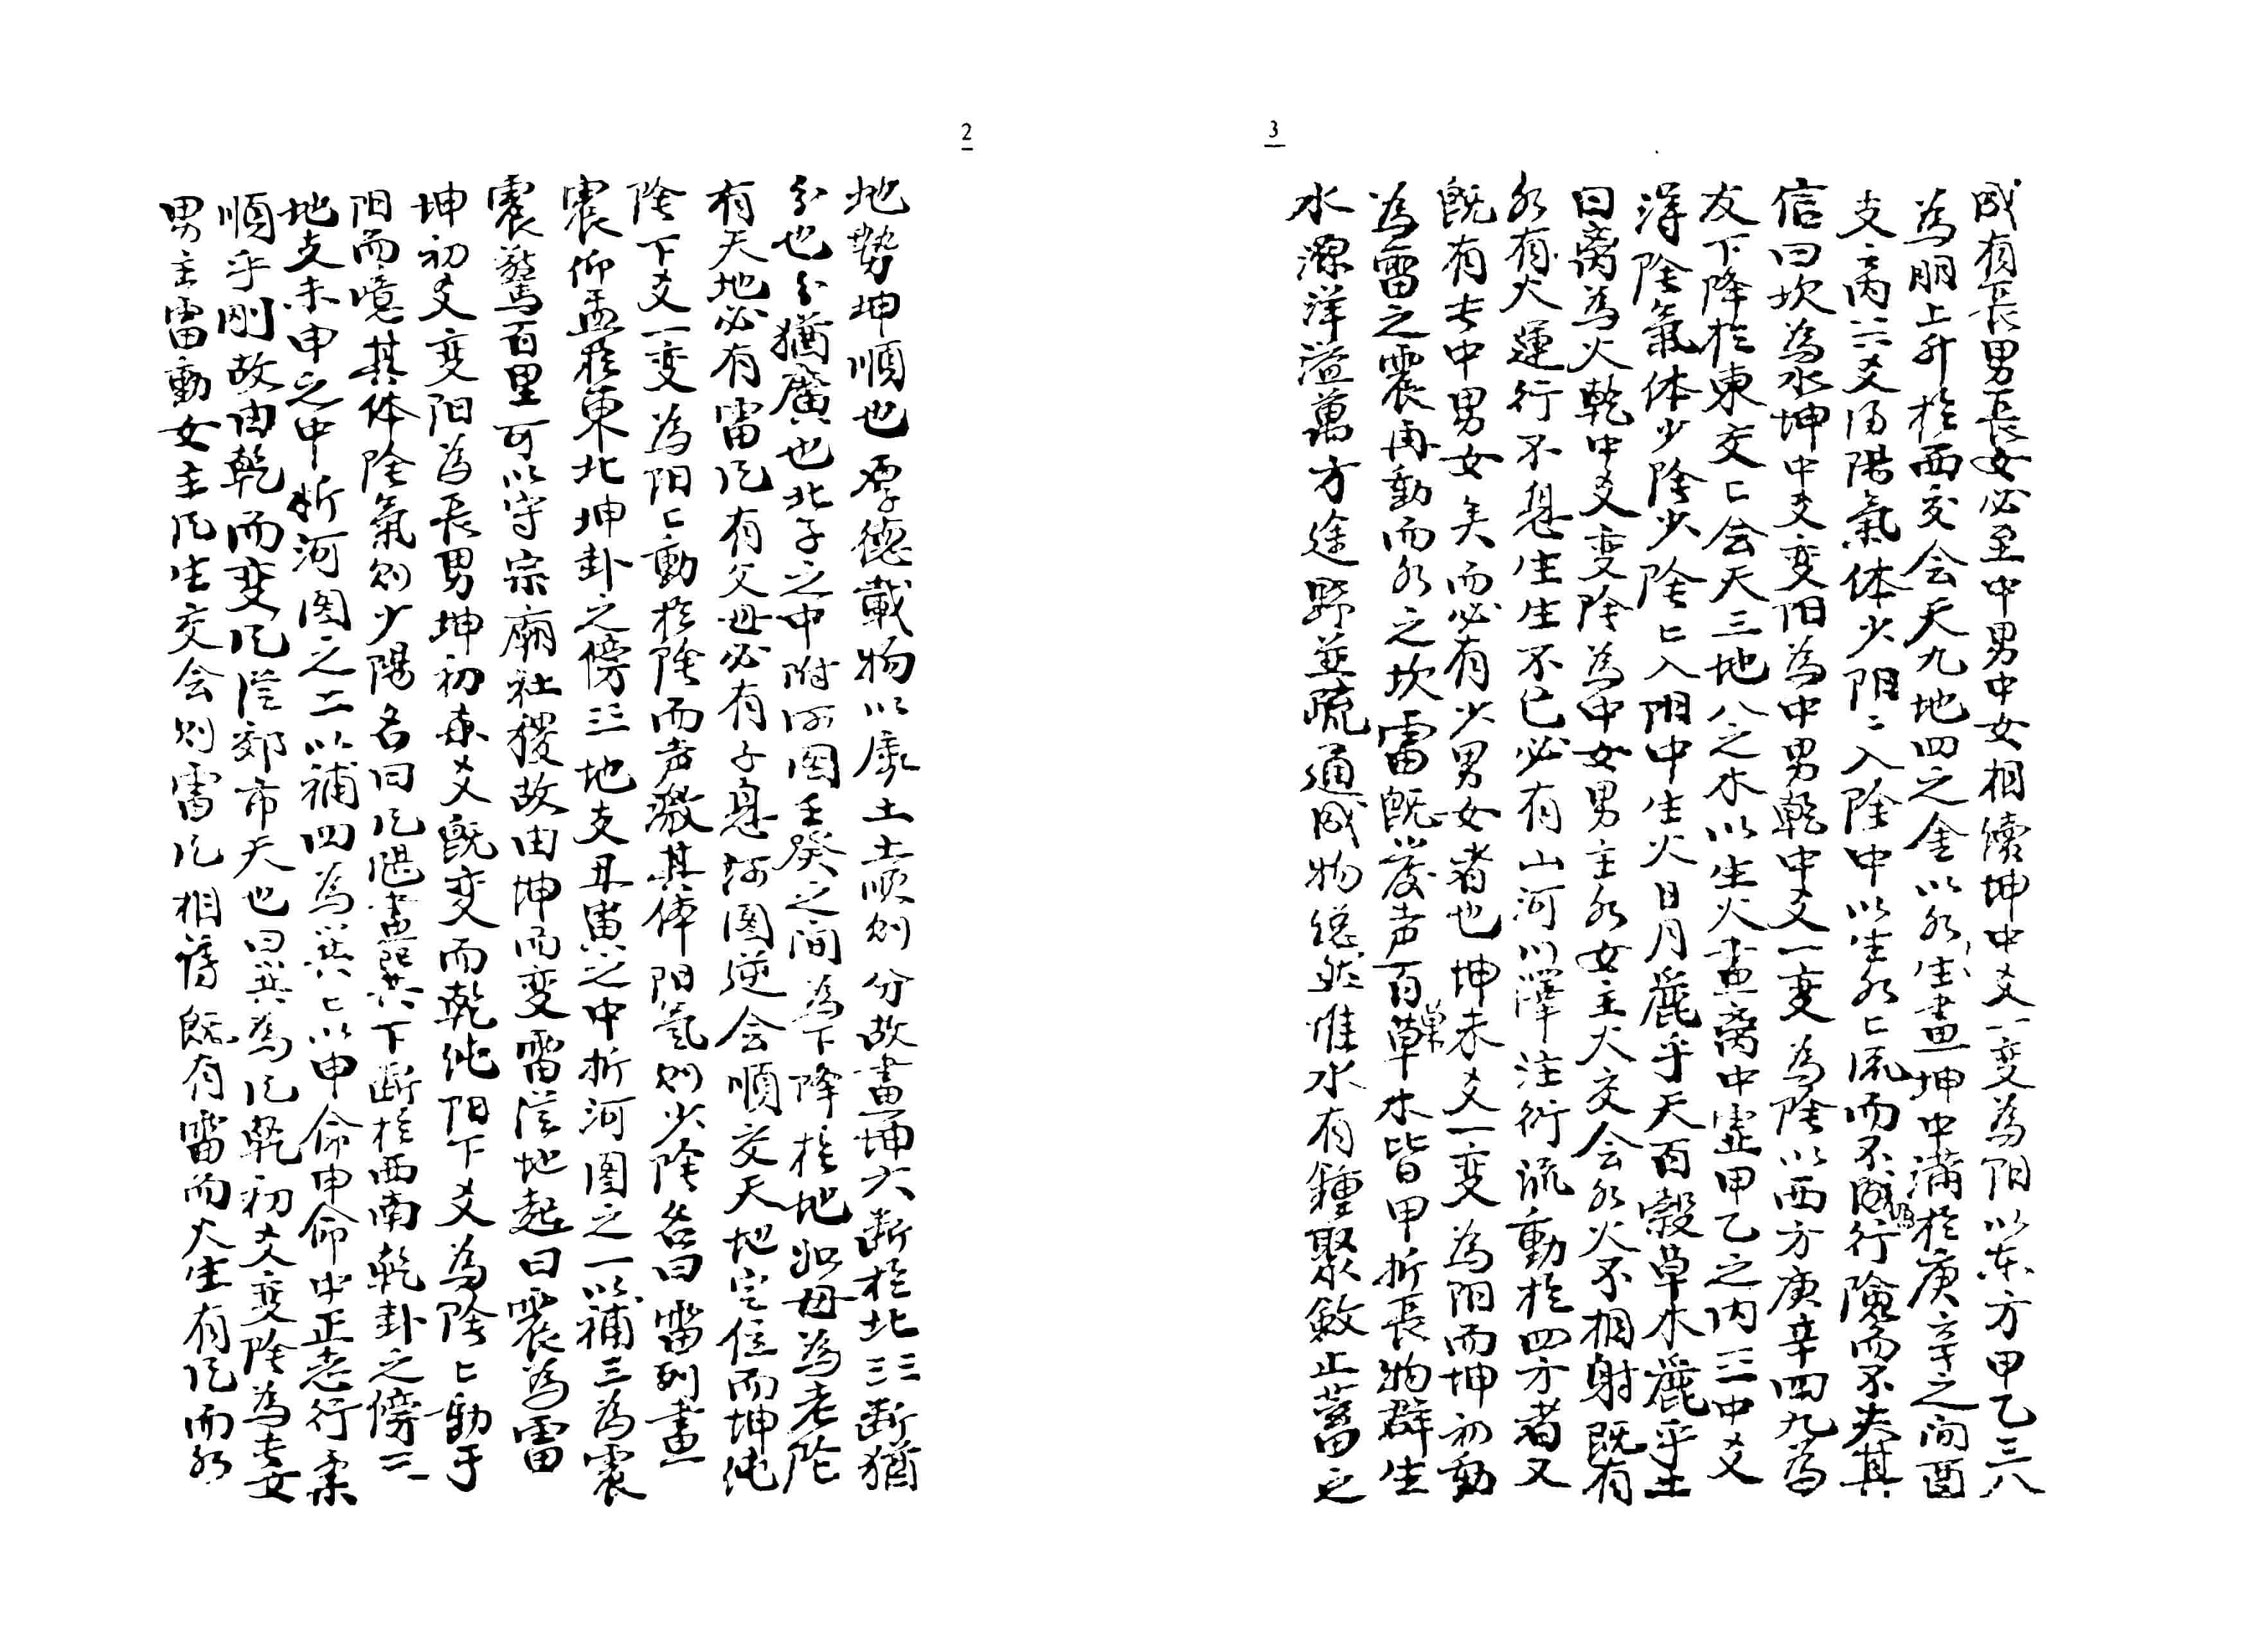 2
地勢坤順也厚德載物以康土土順則分故畫坤六断於北三三断猶
分也分猶廣也北子之中附河图壬癸之间為下降於地如母為老陰
有天地必有雷风有父母必有子息河图逆会順交天地定位而坤纯
陰下爻一变為阳〻動於陰而声發其体阳氣则少陰名曰雷列畫
震仰盂於東北坤卦之傍三地支丑寅之中折河图之一以補三為震
震驚百里可以守宗廟社稷故由坤而变雷從地起曰震為雷
坤初爻变阳為長男坤初爻既变而乾纯阳下爻為陰〻動于
阳而噫其体陰氣则少陽名曰风畫巽下断於西南乾卦之傍三
地支未申之中折河图之二以補四為巽〻以申命申命中正志行柔
順乎剛故由乾而变风從郊市天也曰巽為风乾初爻变陰為長女
男主雷動女主风生交会则雷风相薄既有雷而火生有风而水
3
成有長男長女必至中男中女相續坤中爻一变為阳以东方甲乙三八
為朋上升於西交会天九地四之金以水生畫坤中满於庚辛之间酉
支三丙三爻陽氣体少阳〻入陰中以生水〻流而不盈行險而不失其
信曰坎為水坤中爻变阳為中男乾中爻一变為陰以西方庚辛四九為
友下降於東交〻会天三地八之木以生火畫离中虚甲乙之内三中爻
得陰氣体少陰少陰〻入阳中生火日月麗乎天百穀草木麗乎土
曰离為火乾中爻变陰為中女男主水女主火交会水火不相射既有
水有火運行不息生生不已必有山河川澤注衍流動於四方者又
既有長中男女矣而必有少男女者也坤末爻一变為阳而坤初動
為雷之震再動而水之坎雷既發声百草果木皆甲折長物群生
水深洋溢萬方途野並疏通成物縂然惟水有鍾聚斂止蓄之